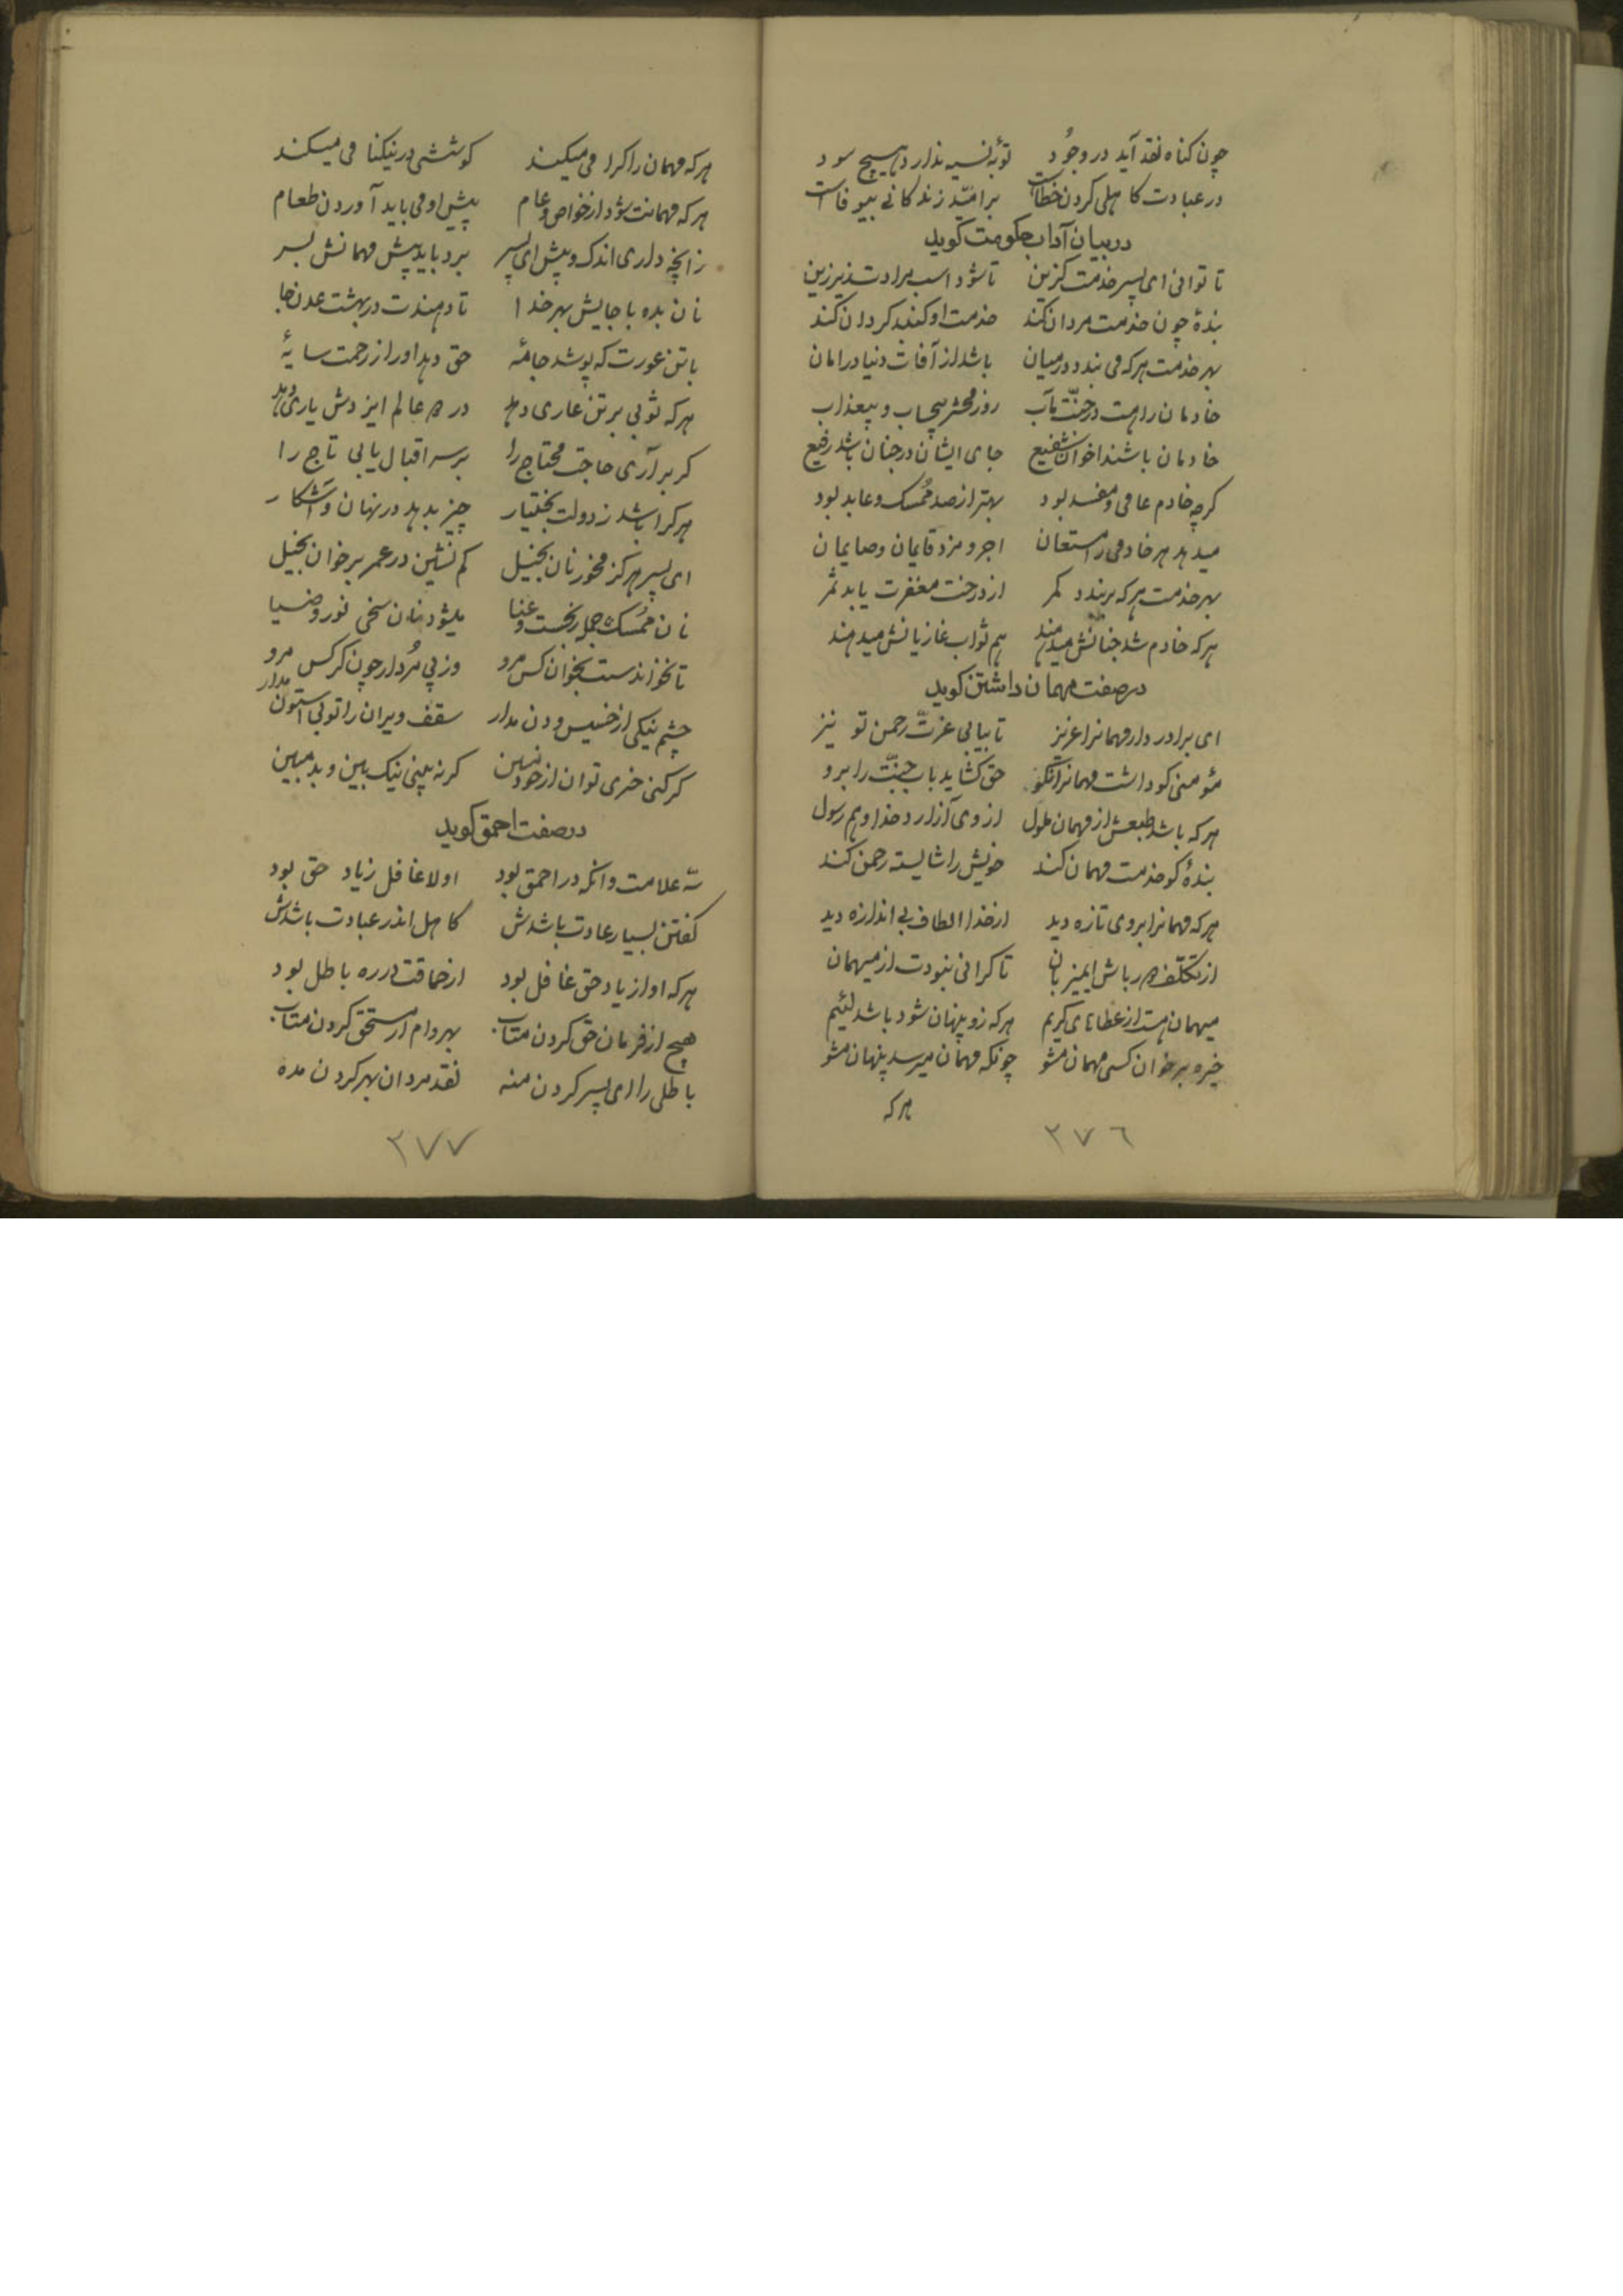 چون کناه نقد آید در وجُود توبهٔ نسیه ندارد هیچ سود
در عبادت کاهلی کردن خطاست بر امّید زندکانی بیوفاست
در بیان آداب حکومت کوید
تا توانی ای پسر خدمت کزین تا شود اسب مرادت زیر زین
بندهٔ چون خدمت مردان کند خدمت او کنبد کردان کند
بهر خدمت هر که می بندد در میان باشد از آفات دنیا در امان
خادمان را هست در جنّت مآب روز محشر بیحساب و بیعذاب
خادمان باشند اخوان شفیع جای ایشان در جنان باشد رفیع
کرچه خادم عاصی و مفسد بود بهتر از صد مُمسک و عابد بود
میدهد هر خادمی را مستعان اجر و مزد قایمان و صایمان
بهر خدمت هر که بر بندد کمر از درخت مغفرت یابد ثمر
هر که خادم شد جنانش میدهند هم ثواب غازیانش میدهند
در صفت مهمان داشتن کوید
ای برادر دار مهمانرا عزیز تا بیابی عزّت رحمن تو نیز
مؤمنی کو داشت مهمانرا نکو حق کشاید باب جنّت را برو
هر که باشد طبعش از مهمان ملول از وی آزارد خدا و هم رسول
بندهٔ کو خدمت مهمان کند خویش را شایسته رحمن کند
هر که مهمانرا بروی تازه دید از خدا الطاف بی اندازه دید
از تکلّف دور باش ای میزبان تا کرانی نبودت از میهمان
میهمان هست از عطاهای کریم هر که زو پنهان شود باشد لئیم
خیره بر خوان کسی مهمان مشو چونکه مهمان میرسد پنهان مشو
هر که
٣٧٦
هر که مهمان را کرامی میکند کوششی در نیکنامی میکند
هر که مهمانت شود از خواص و عام پیش او می باید آوردن طعام
زانچه داری اندک و بیش ای پسر برد باید پیش مهمانش بسر
نان بده با جایش بهر خدا تا دهندت در بهشت عدن جا
با تن عورت که پوشد جامهٔ حق دهد او را ز رحمت سایهٔ
هر که ثوبی بر تن عاری دهد در دو عالم ایزدش یاری دهد
کر بر آری حاجت محتاج را بر سر اقبال یابی تاج را
هر کرا باشد ز دولت بختیار چیز بدهد در نهان و آشکار
ای پسر هرکز مخور نان بخیل کم نشین در عمر بر خوان بخیل
نان مُمسک جمله رنجست و عنا میشود نان سخی نور و ضیا
تا نخوانندت بخوان کس مرو وز پی مُردار چون کرکس مرو
چشم نیکی از خسیس و دن مدار سقف ویران را تو بی استون مدار
کر کنی خیری تو آن از خود مبین کر نه بینی نیک بین و بد مبین
در صفت احمق کوید
سه علامت دانکه در احمق بود اولا غافل ز یاد حق بود
کفتن بسیار عادت باشدش کاهل اندر عبادت باشدش
هر که او از یاد حق غافل بود از حماقت در ره باطل بود
هیچ از فرمان حق کردن متاب بهر وام از مستحق کردن متاب
باطلی را ای پسر کردن منه نقد مردان بهر کردن مده
٣٧٧